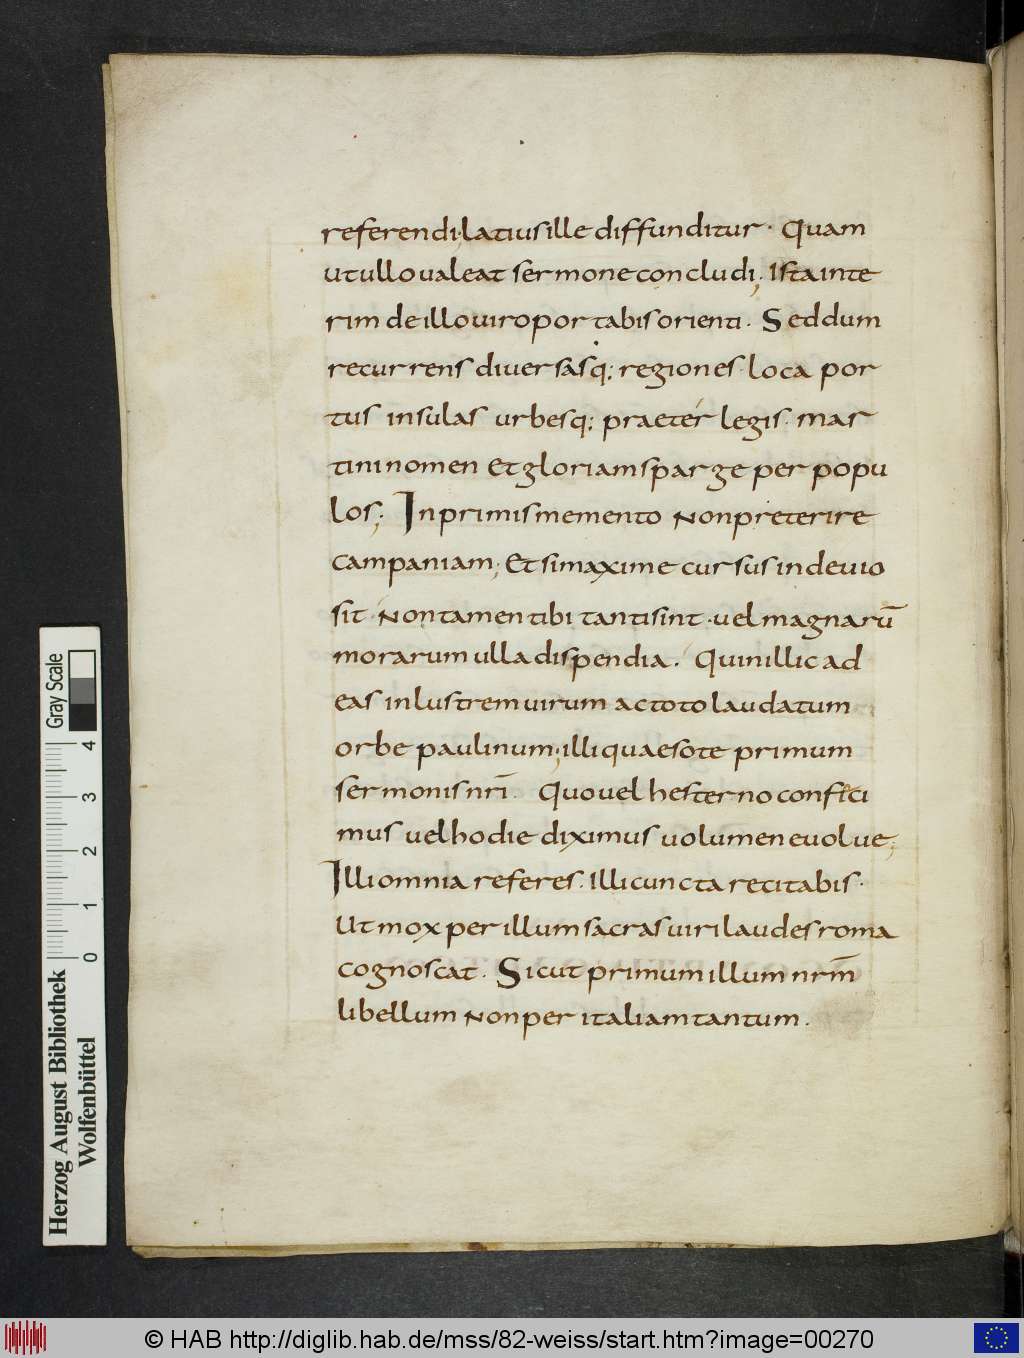 referendi; latius ille diffunditur · Quam
ut ullo ualeat sermone concludi; Ista inte
rim de illo uiro portabis orienti. Sed dum
recurrens diuersasq; regiones · loca por
tus insulas urbesq; praeter legis · mar
tini nomen et gloriam sparge per popu
los; In primis memento non preterire
campaniam; Et si maxime cursus in deuio
sit · Non tamen tibi tanti sint · uel magnarū
morarum ulla dispendia. Quin illic ad
eas inlustrem uirum ac toto laudatum
orbe paulinum; illi quaeso te primum
sermonis nr̄i. Quo uel hesterno confici
mus uel hodie diximus uolumen euolue;
Illi omnia referes. Illi cuncta recitabis ·
Ut mox per illum sacras uiri laudes roma
cognoscat. Sicut primum illum nr̄m
libellum non per italiam tantum.
Herzog August Bibliothek
Wolfenbüttel
Gray Scale
0 1 2 3 4
© HAB http://diglib.hab.de/mss/82-weiss/start.htm?image=00270